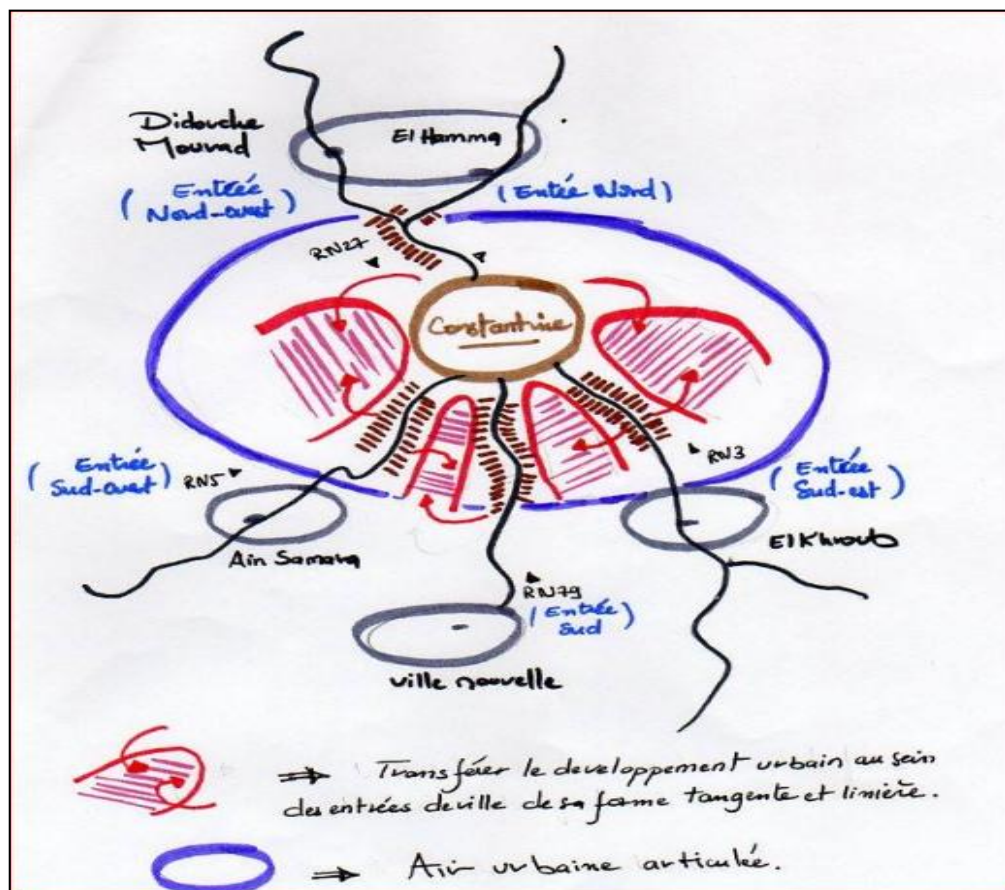 Didouche
Mourad
El Hamma
(Entrée
Nord-ouest)
(Entée Nord)
RN27
Constantine
(Entrée
Sud-ouest)
RN5
RN3
(Entrée
Sud-est)
Ain Samara
El Khroub
RN79
(Entrée
Sud)
Ville nouvelle
⇒ Transférer le developpement urbain au sein
des entrées de ville de sa forme tangente et linière.
⇒ Air urbaine articulée.